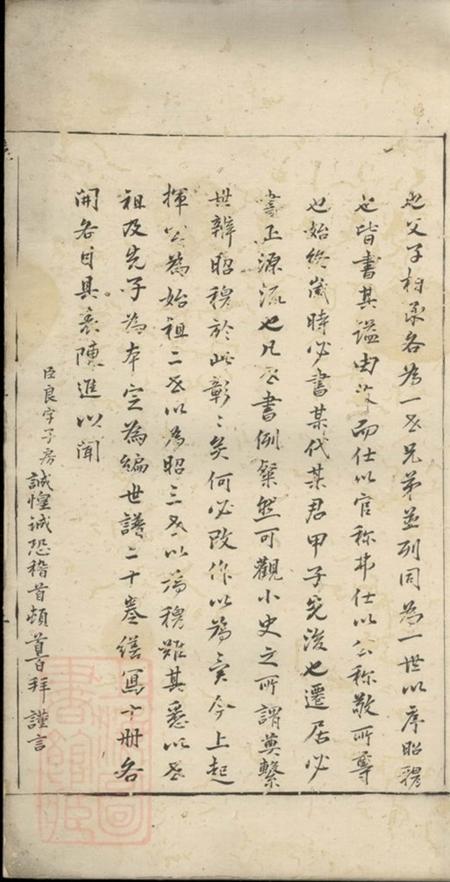 也父子相承各為一世兄弟並列同為一世以序昭穆
也皆書其謚由 而仕以官称弗仕以公称敬所尊
也始終歲時必書某代某君甲子先後也遷居必
書正源流也凡世書例粲然可觀小史之所謂奠繫
世辨昭穆於此彰〻矣何必改作以為  今上起
揮公為始祖二世以為昭三世以為穆雖其悉以世
祖及先子為本定為編世譜二十卷繕冩十册各
開各目具表陳進以聞
臣良字子房誠惶诚恐稽首頓首百拜 謹言
書館